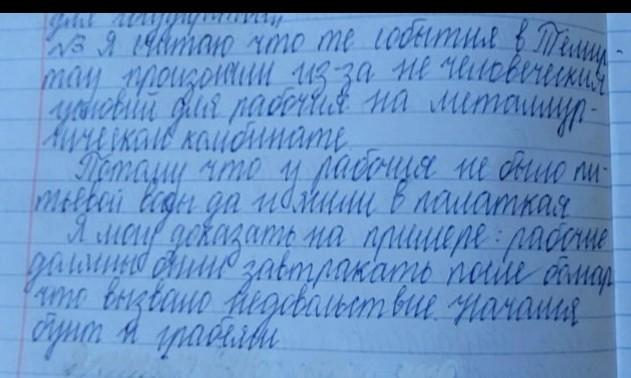 для государства
№3 Я считаю что те события в Темир-
тау произошли из-за не человеческих
условий для рабочих на металлур-
гическом комбинате.
Потому что у рабочих не было пи-
тьевой воды да и жили в палатках
Я могу доказать на примере: рабочие
должны были завтракать после
что вызвало недовольствие. Начался
бунт и грабежи